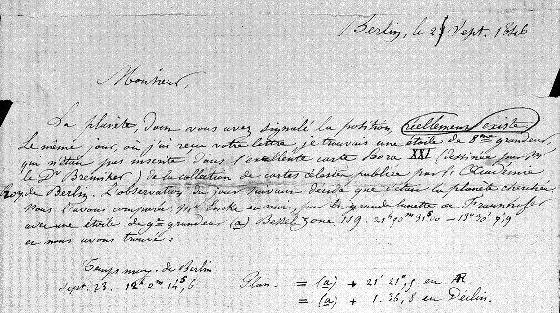 Berlin, le 25 Sept. 1846
Monsieur,
La planète, dont vous avez signalé la position réellement existe.
Le même jour, où j'ai reçu votre lettre, je trouvais une étoile de 8me grandeur,
qui n'était pas inscrite dans l'excellente carte hora XXI (dessinée par Mr
le Dr Bremiker) de la collection de cartes célestes publiée par l'Académie
roy. de Berlin. L'observation du jour suivant décida que c'était la planète cherchée.
Nous l'avons comparée, Mr Encke et moi, par la grande lunette de Fraunhofer
avec une étoile de 9e grandeur (a) Bessel Zone 119. 21h
et nous avons trouvé:
Temps moy. de Berlin
Sept. 23. 12h 0m 14s,6 Plan. = (a) + 21' 21", 5 en AR
= (a) + 1. 36, 8 en Déclin.